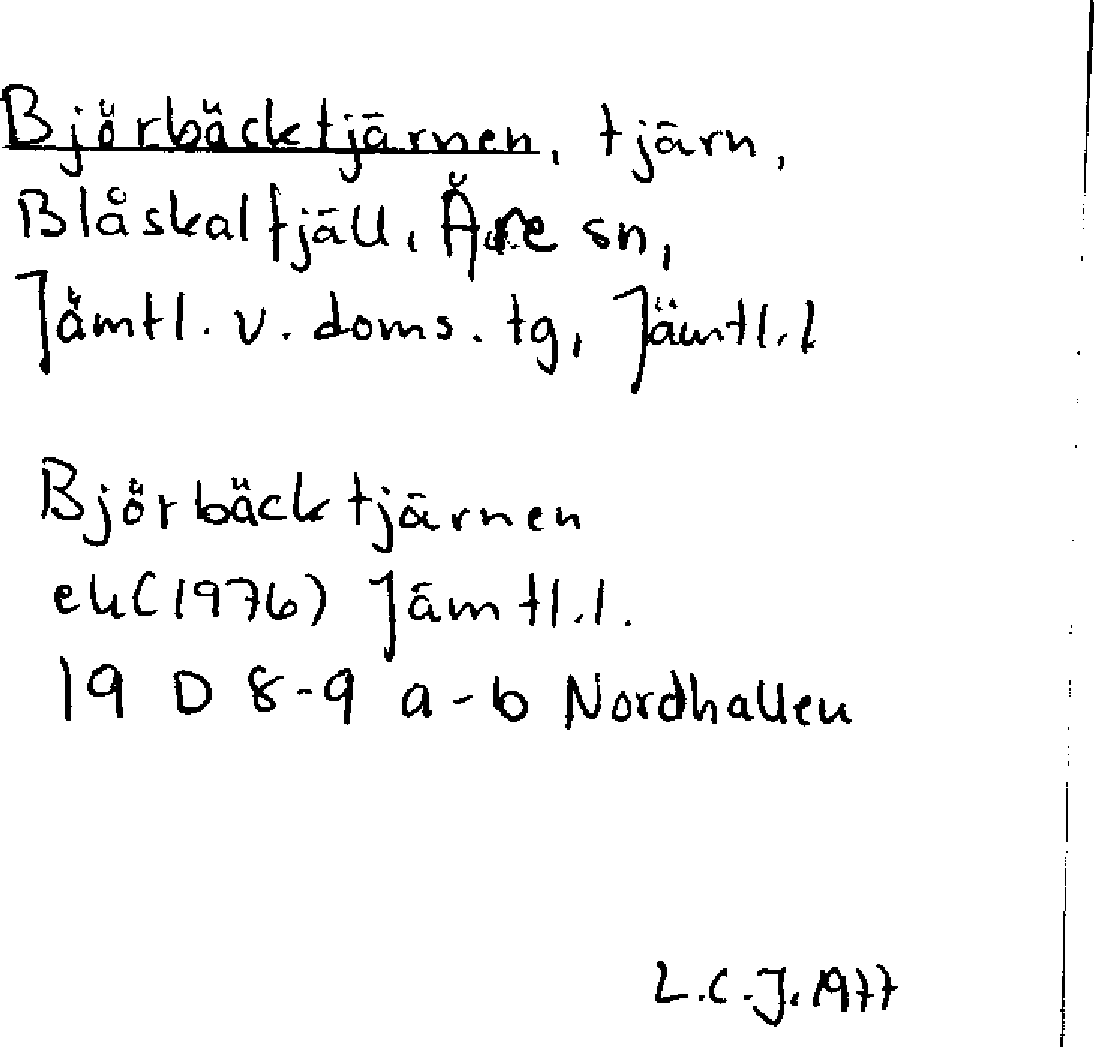 Björbäcktjärnen, tjärn,
Blåskalfjäll, Åre sn,
Jämtl. v. doms. tg, Jämtl.l
Björbäcktjärnen
ek(1976) Jämtl.l.
19 D 8-9 a-b Nordhallen
L.C.J. 1977